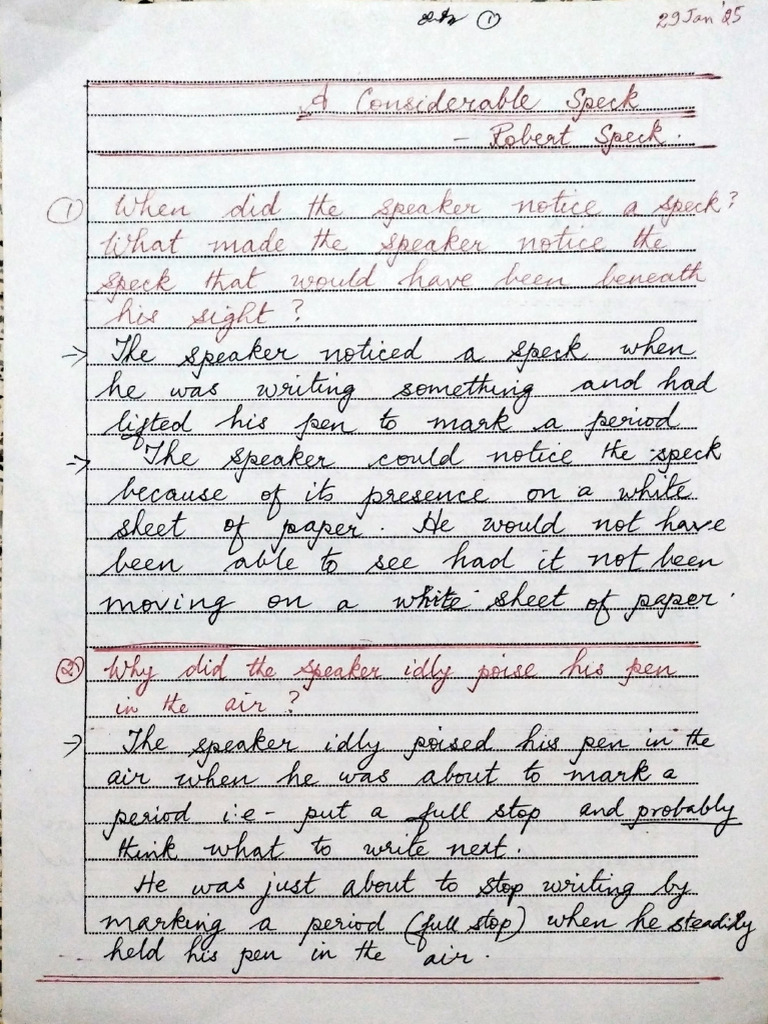 ①
29 Jan '25
A Considerable Speck
- Robert Speck.
① When did the speaker notice a speck?
What made the speaker notice the
speck that would have been beneath
his sight?
→ The speaker noticed a speck when
he was writing something and had
lifted his pen to mark a period
→ The speaker could notice the speck
because of its presence on a white
sheet of paper. He would not have
been able to see had it not been
moving on a white sheet of paper.
② Why did the speaker idly poise his pen
in the air?
→ The speaker idly poised his pen in the
air when he was about to mark a
period i.e- put a full stop and probably
think what to write next.
He was just about to stop writing by
marking a period (full stop) when he steadily
held his pen in the air.